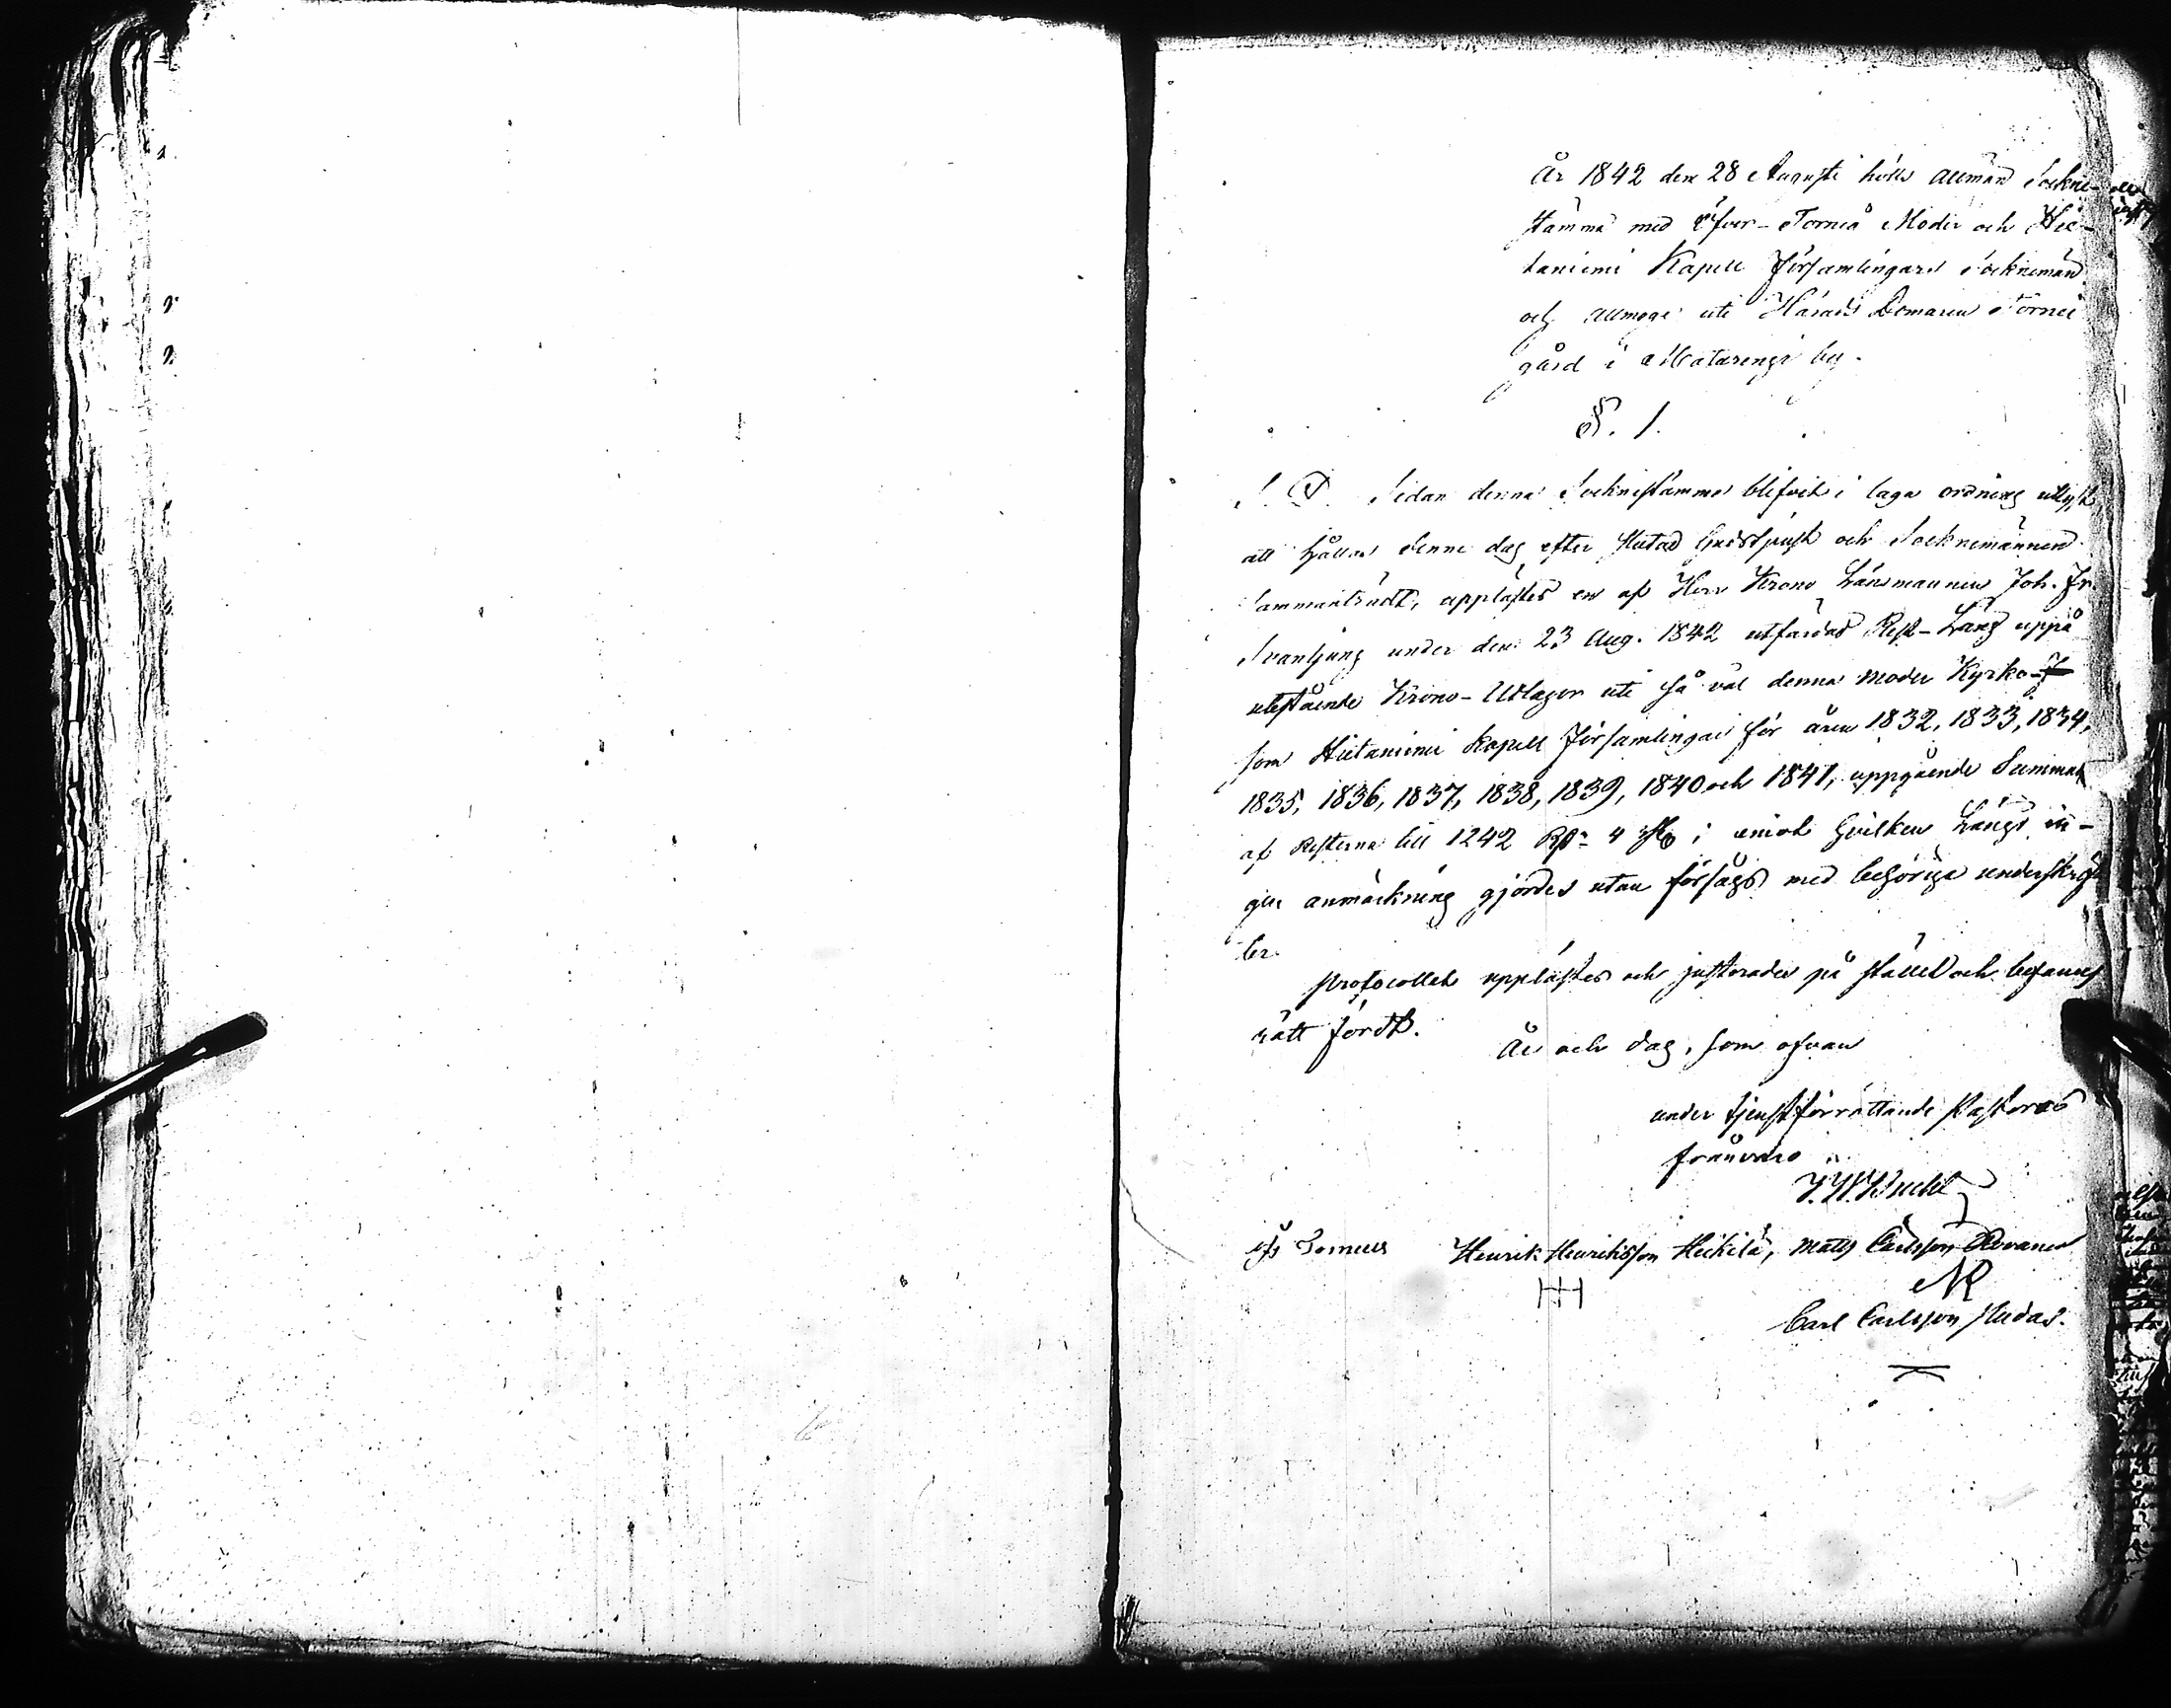 År 1842 den 28 Augusti hölls allmän Sockne-
stämma med Öfver-Torneå Moder och Hie-
taniemi Kapell Församlingars Socknemän
och allmoge uti Härads Domaren Törnei
gård i Matarengi by.
§. 1.
S. D. Sedan denna Sockenstämma blifvit i laga ordning utlyst
att hållas denne dag efter slutad Gudstjenst och Socknemännen
sammanträdt, upplästes en af Herr Krono Länsmannen Joh. Fr.
Svanljung under den 23 Aug. 1842 utfärdad Rest-Längd uppå
utestående Krono-Utlagor uti så väl denna moder Kyrko-
som Hietaniemi Kapell Församlingar för åren 1832, 1833, 1834,
1835, 1836, 1837, 1838, 1839, 1840 och 1841, uppgående Summan
af Resterna till 1242 Rd 4 sk; emot hvilken Längd in-
gen anmärkning gjordes utan försågs med behöriga underskrif-
ter.
Protocollet upplästes och justerades på stället och befanns
rätt fördt.
År och dag, som ofvan
under tjenstförrättande Pastorns
frånvaro
Is Torneus Henrik Henriksson Heikilä, Mats Carlsson Rovanen
HH
MR
Carl Carlsson Hudas.